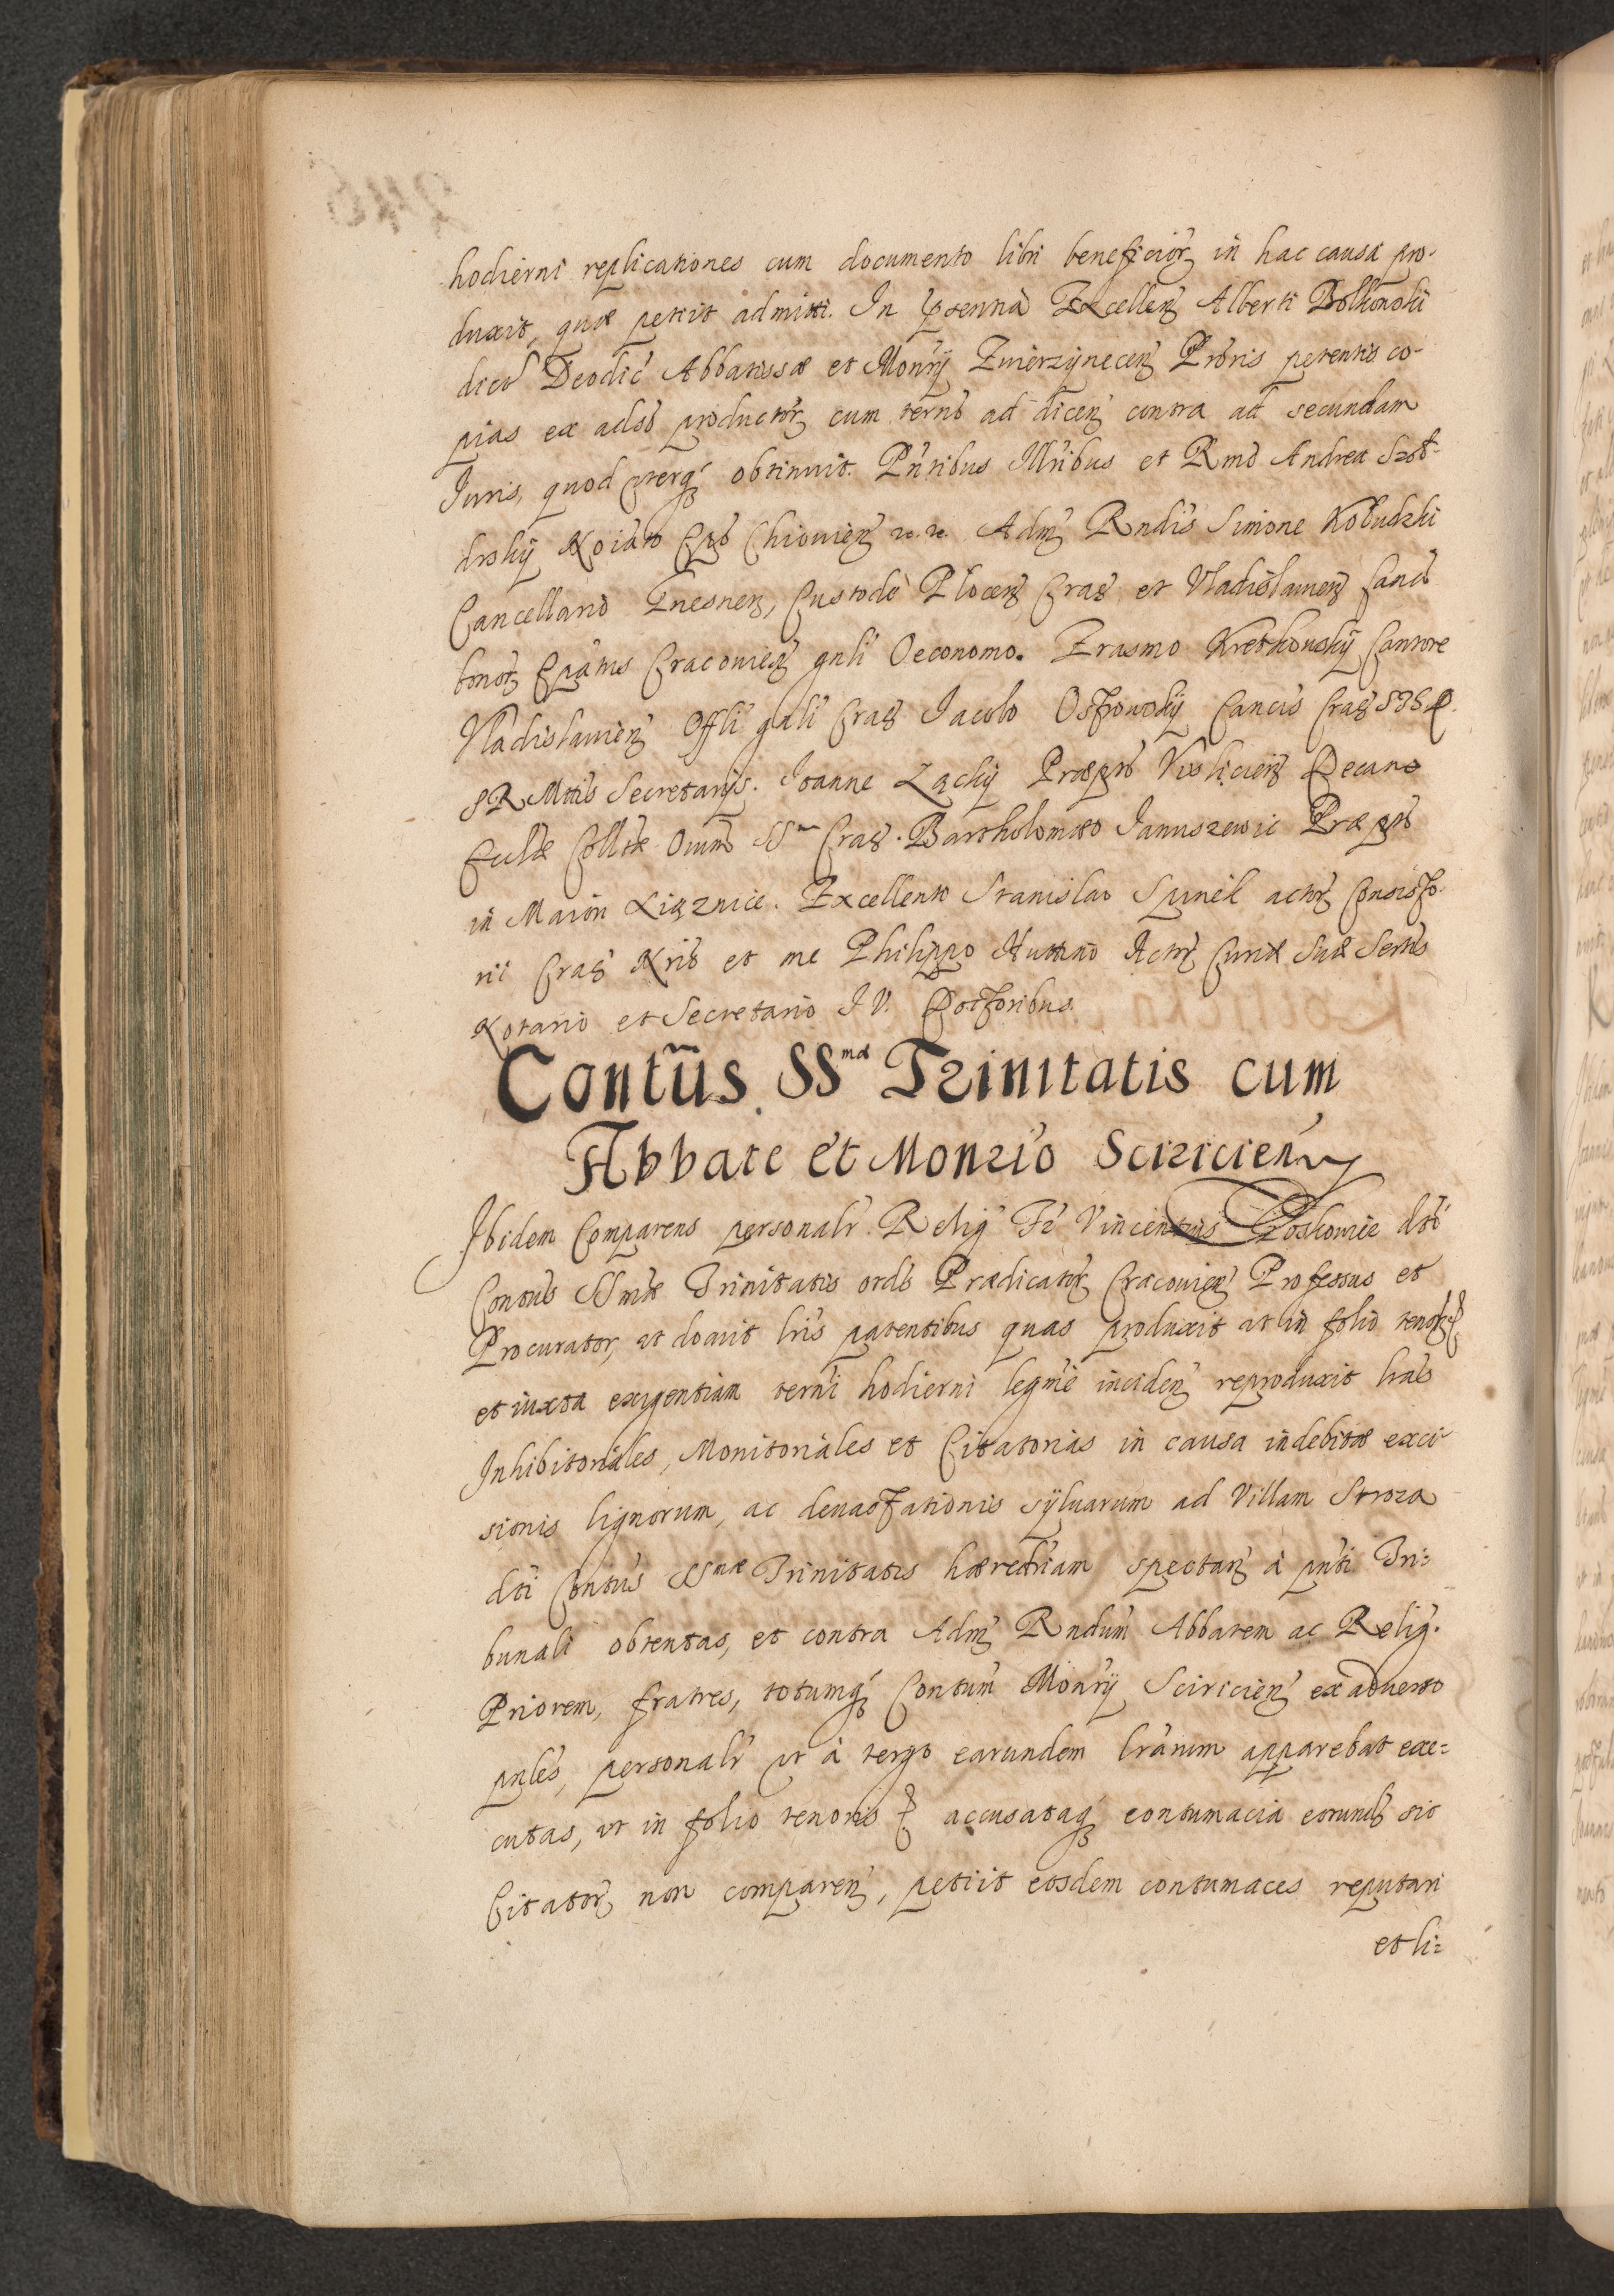 hodierni replicationes cum documento libri beneficior, in hac causa pro-
duxit, quæ petiit admitti. In pttennà Excellen, Alberti Bolkonski
dicto Deodic Abbatissæ et Monrÿ Zwierzÿnecen, Prôris petentis co-
pias ex adso productor, cum termo ad dicen, contra ad secundam
Juris, quod uterq, obtinuit. Pntibus Illribus et Rmo Andrea Szoł-
drskÿ Noiato Epo Chiouien, 2c. 2c. Adm, Rndis Simone Kołudzki
Cancellario Gnesnen, Custode Plocen, Crac, et Vladislauien, Canco
bonor, Epatus Cracouien, gnli Oeconomo. Erasmo Kretkouskÿ Cantore
Vladislauien, Offli gnli Crac, Jacobo Ostrowskÿ Cancis Crac,
SR Mttis Secretarÿs. Joanne Zackÿ Præpto Visliciens Decano
Eccliæ Collte Omm SSrum Crac. Bartholomæo Januszewic Præpto
in Maiori Xiąznice. Excellento Stanislao Spinek actor, Consisto-
rii Crac, Nrio et me Philippo Huttino Actor, Curiæ Suæ Sertis
Notario et Secretario J V. Dottoribus.
Contus SSmæ Trinitatis cum
Abbate et Monrio Sciricien
Ibidem Comparens personalr Relig, Fr Vincentius Doskowic dti
Contus SSmæ Trinitatis ordis Prædicator, Cracouien, Professus et
Procurator, ut docuit lris patentibus quas produxit ut in folio tenoris
et iuxta exigentiam termi hodierni legme inciden, reproduxit lras
Inhibitoriales, Monitoriales et Citatorias in causa indebitæ exci-
sionis lignorum, ac deuastationis sÿluarum ad Villam Stroza
dti Contus SSmæ Trinitatis hæredriam spectan, à pnti Tri-
bunali obtentas, et contra Adm, Rndum Abbatem ac Relig.
Priorem, fratres, totumq, Contum Monrÿ Sciricien, ex aduerso
pnles, personalr ut à tergo earundem lrarum apparebat exe=
cutas, ut in folio tenoris accusataq, contumacia eorund, sic
Citator, non comparen, petiit eosdem contumaces reputari
et li=